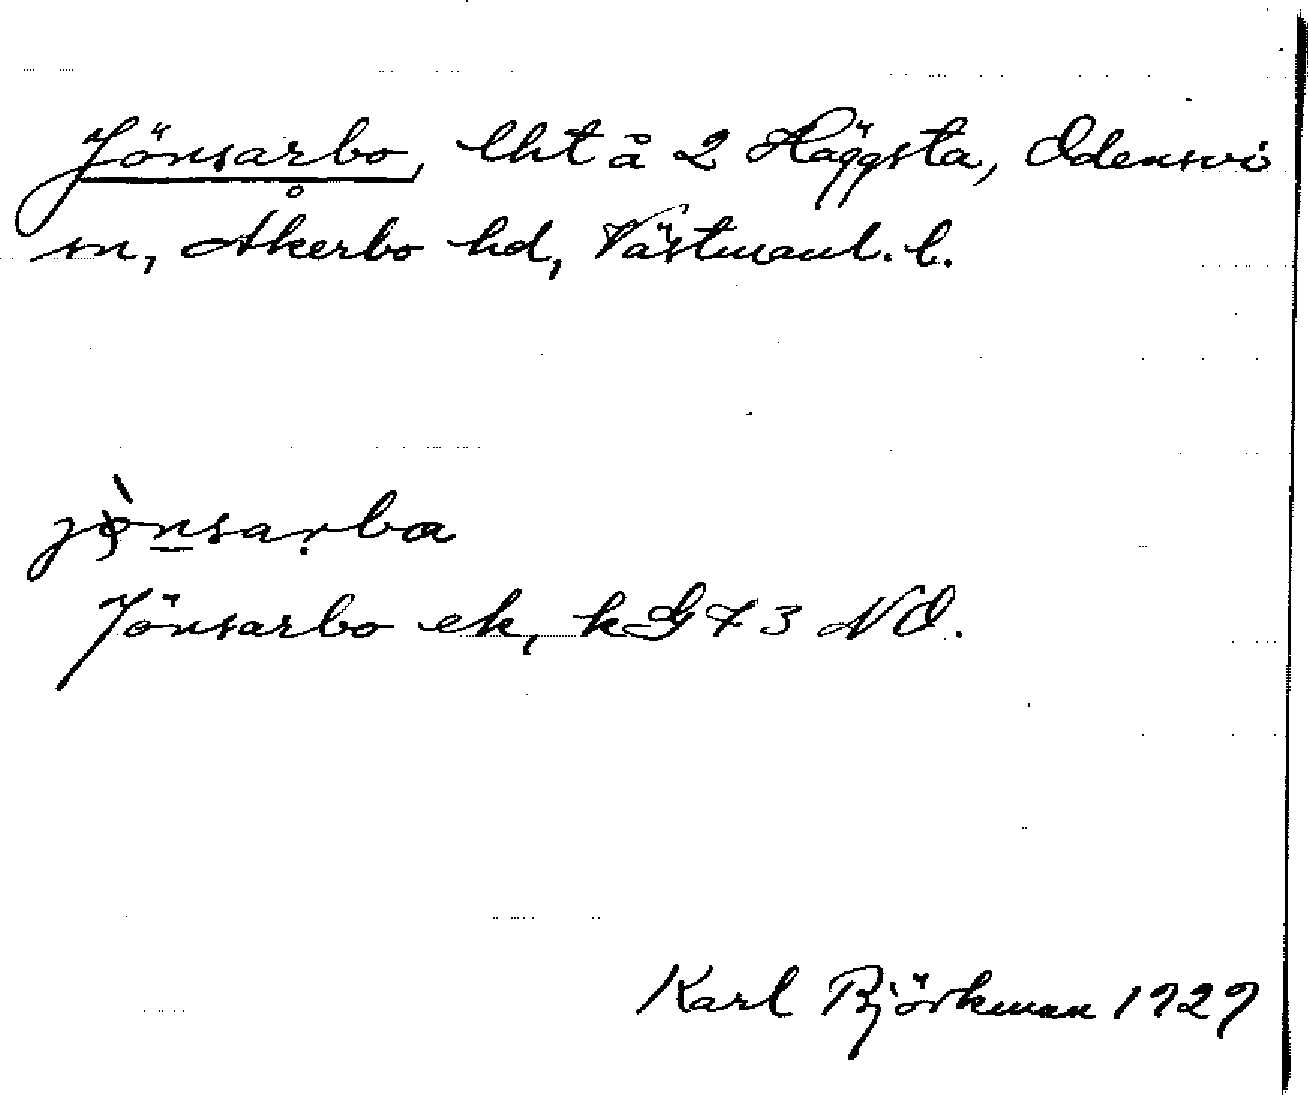 Jönsarbo, lht å 2 Häggsta, Odensvi
sn, Åkerbo hd, Västmanl. l.
jö̀nsarba
Jönsarbo ek, k G 73 NO.
Karl Björkman 1929